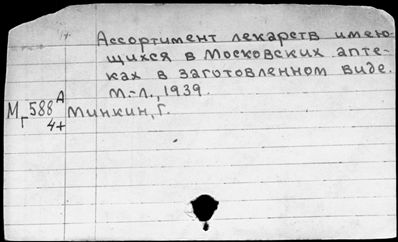 Ассортимент лекарств имею-
щихся в Московских апте-
ках в заготовленном виде.
М.-Л., 1939.
Мг 588 А
4+
Минкин, Г.